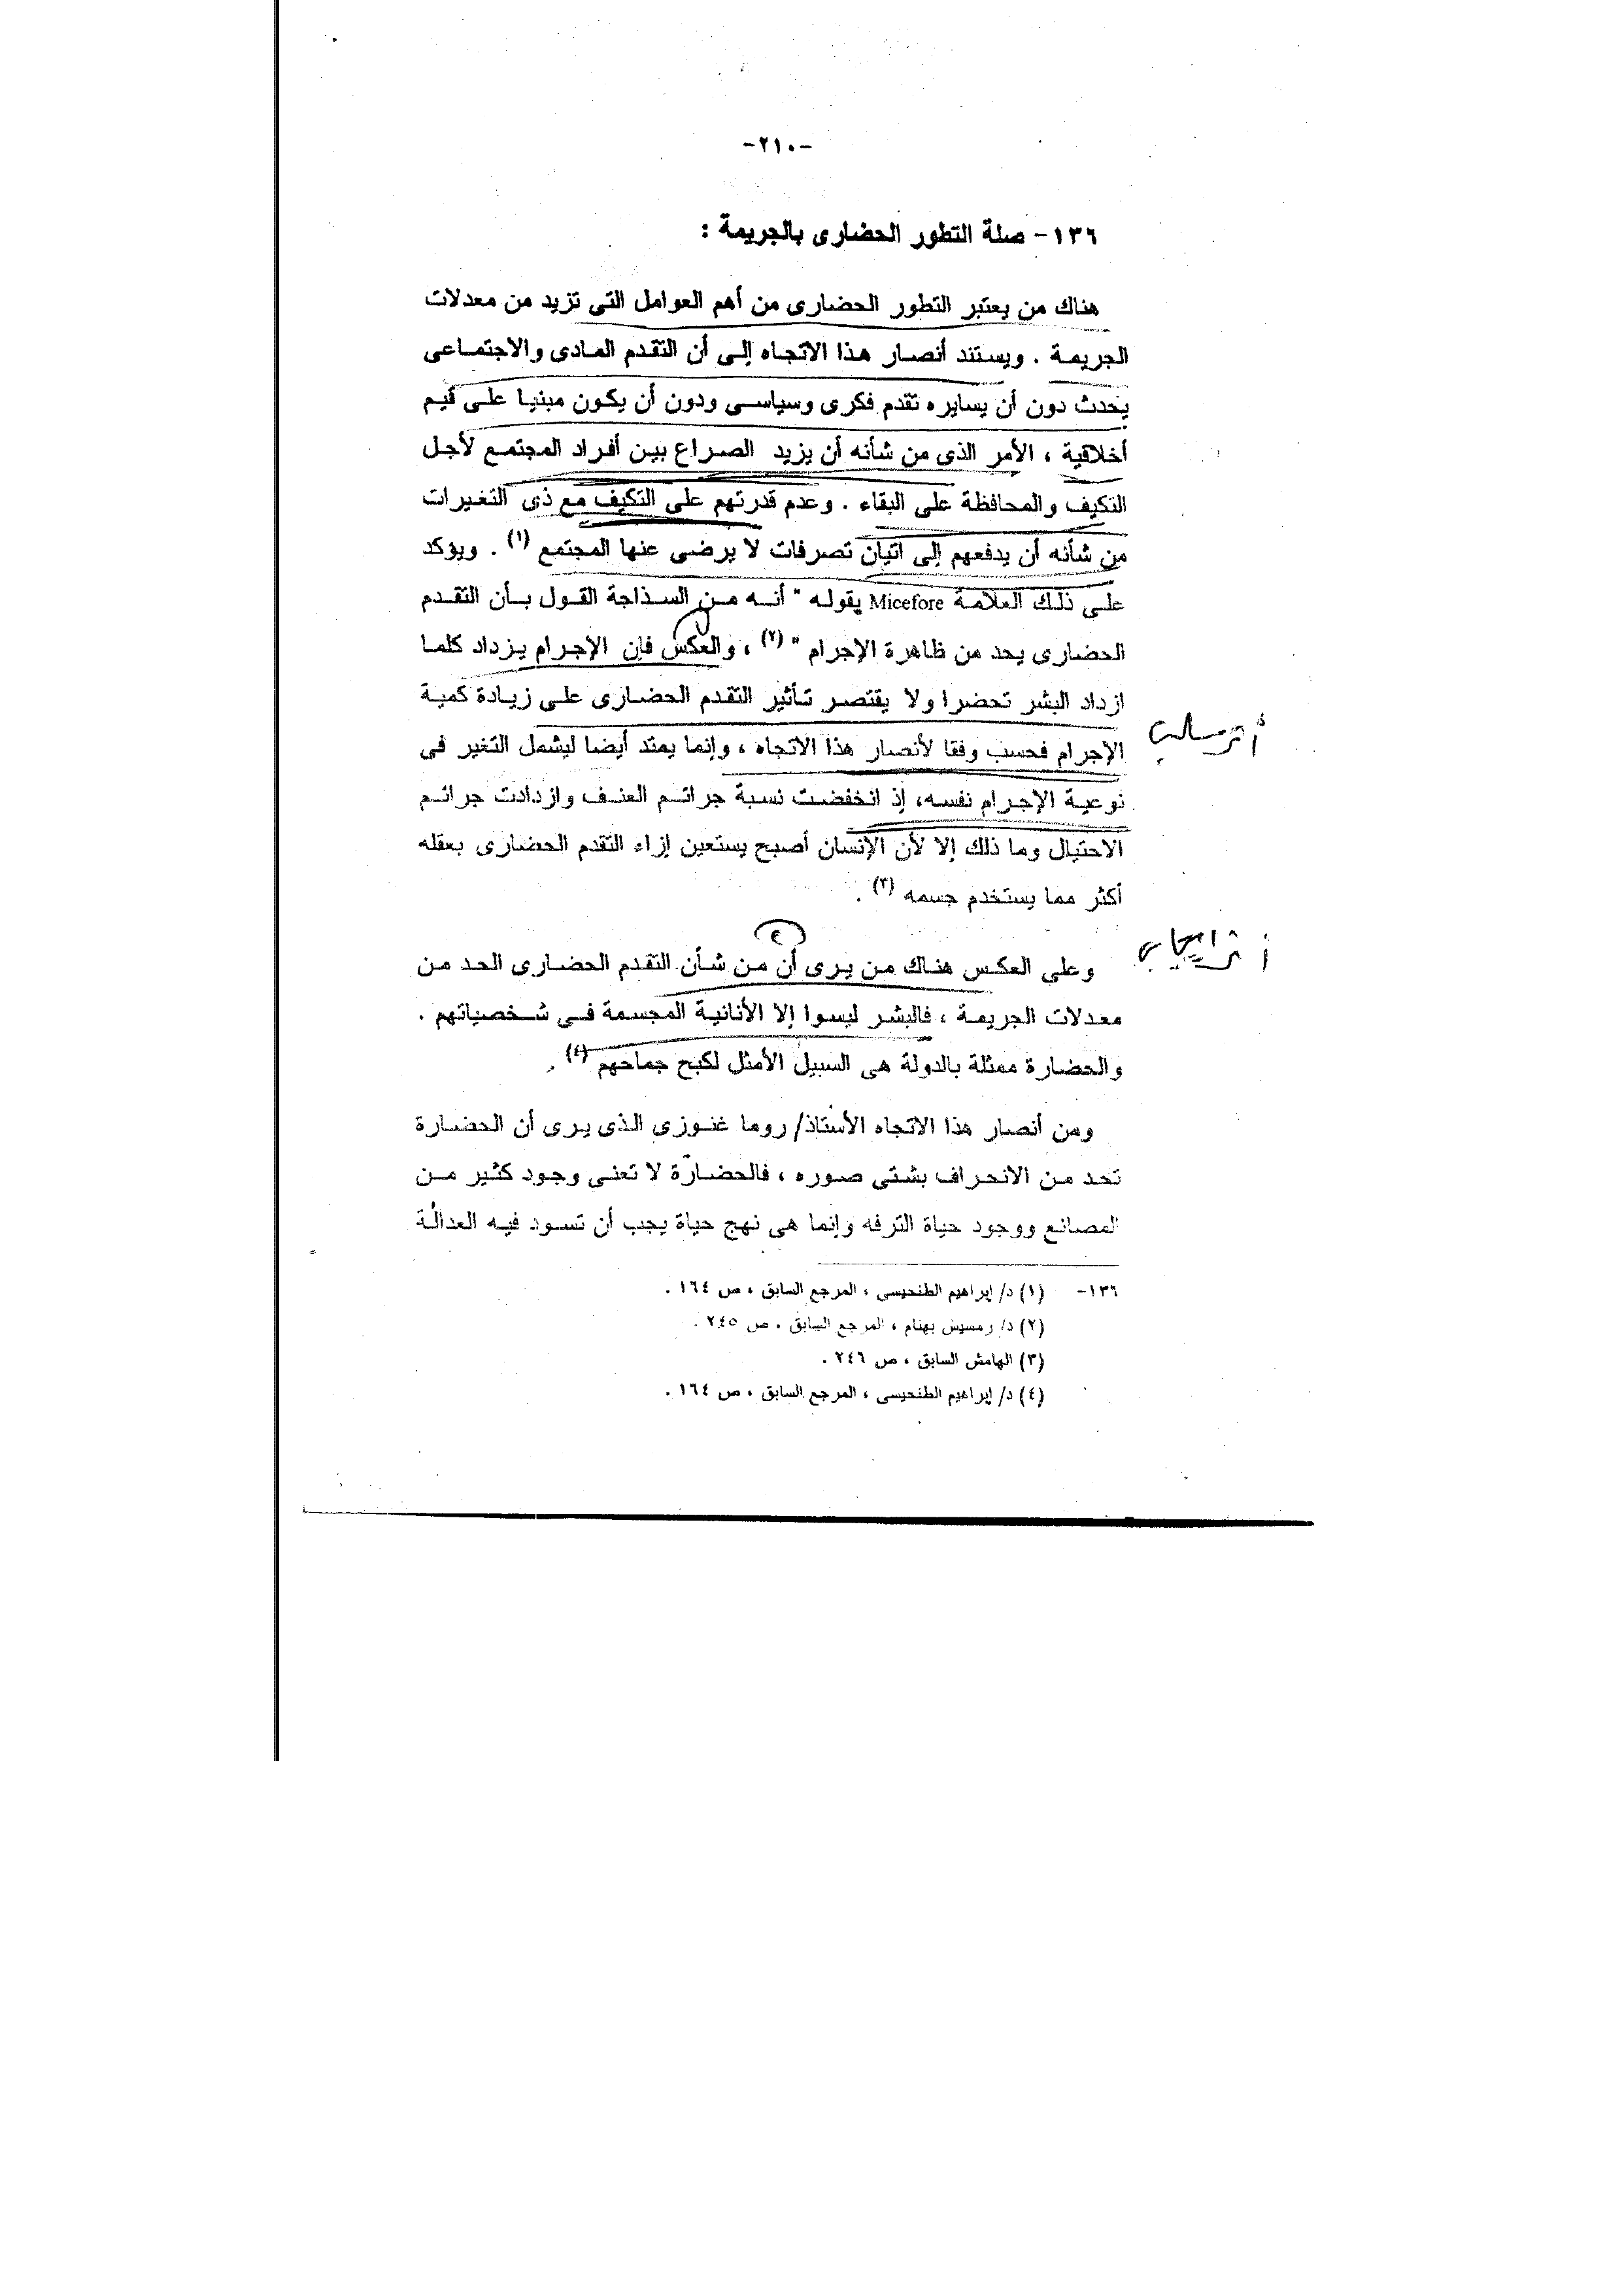 -٢١٠-
١٣٦- صلة التطور الحضارى بالجريمة :
هناك من يعتبر التطور الحضارى من أهم العوامل التى تزيد من معدلات
الجريمة . ويستند أنصار هذا الاتجاه إلى أن التقدم المادى والاجتماعى
يحدث دون أن يسايره تقدم فكرى وسياسى ودون أن يكون مبنيا على قيم
أخلاقية ، الأمر الذى من شأنه أن يزيد الصراع بين أفراد المجتمع لأجل
التكيف والمحافظة على البقاء . وعدم قدرتهم على التكيف مع ذى التغيرات
من شأنه أن يدفعهم إلى اتيان تصرفات لا يرضى عنها المجتمع (١) . ويؤكد
على ذلك العلامة Micefore يقوله " أنه من السذاجة القول بأن التقدم
الحضارى يحد من ظاهرة الإجرام " (٢) ، والعكس فإن الإجرام يزداد كلما
ازداد البشر تحضرا ولا يقتصر تأثير التقدم الحضارى على زيادة كمية
أثر سالب
الإجرام فحسب وفقا لأنصار هذا الاتجاه ، وإنما يمتد أيضا ليشمل التغير فى
نوعية الإجرام نفسه، إذ انخفضت نسبة جرائم العنف وازدادت جرائم
الاحتيال وما ذلك إلا لأن الإنسان أصبح يستعين إزاء التقدم الحضارى بعقله
أكثر مما يستخدم جسمه (٣) .
أثر إيجابى
وعلى العكس هناك من يرى أن من شأن التقدم الحضارى الحد من
معدلات الجريمة ، فالبشر ليسوا إلا الأنانية المجسمة فى شخصياتهم .
والحضارة ممثلة بالدولة هى السبيل الأمثل لكبح جماحهم (٤) .
ومن أنصار هذا الاتجاه الأستاذ/ روما غنوزى الذى يرى أن الحضارة
تحد من الانحراف بشتى صوره ، فالحضارة لا تعنى وجود كثير من
المصانع ووجود حياة الترفه وإنما هى نهج حياة يجب أن تسود فيه العدالة
١٣٦- (١) د/ إبراهيم الطنحيسى ، المرجع السابق ، ص ١٦٤ .
(٢) د/ رمسيس بهنام ، المرجع السابق ، ص ٢٤٥ .
(٣) الهامش السابق ، ص ٢٤٦ .
(٤) د/ إبراهيم الطنحيسى ، المرجع السابق ، ص ١٦٤ .